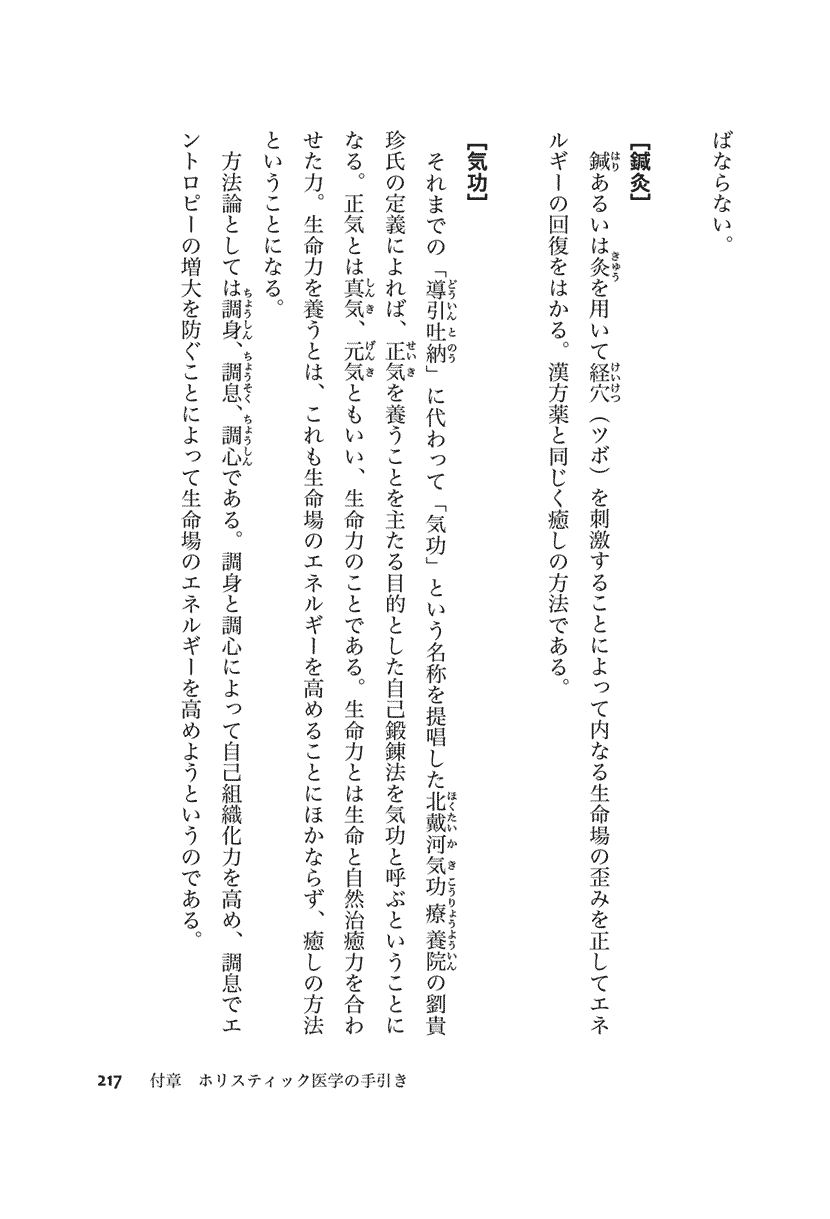 ばならない。
[鍼灸]
鍼あるいは灸を用いて経穴（ツボ）を刺激することによって内なる生命場の歪みを正してエネ
ルギーの回復をはかる。漢方薬と同じく癒しの方法である。
[気功]
それまでの「導引吐納」に代わって「気功」という名称を提唱した北戴河気功療養院の劉貴
珍氏の定義によれば、正気を養うことを主たる目的とした自己鍛錬法を気功と呼ぶということに
なる。正気とは真気、元気ともいい、生命力のことである。生命力とは生命と自然治癒力を合わ
せた力。生命力を養うとは、これも生命場のエネルギーを高めることにほかならず、癒しの方法
ということになる。
方法論としては調身、調息、調心である。調身と調心によって自己組織化力を高め、調息でエ
ントロピーの増大を防ぐことによって生命場のエネルギーを高めようというのである。
217 付章 ホリスティック医学の手引き